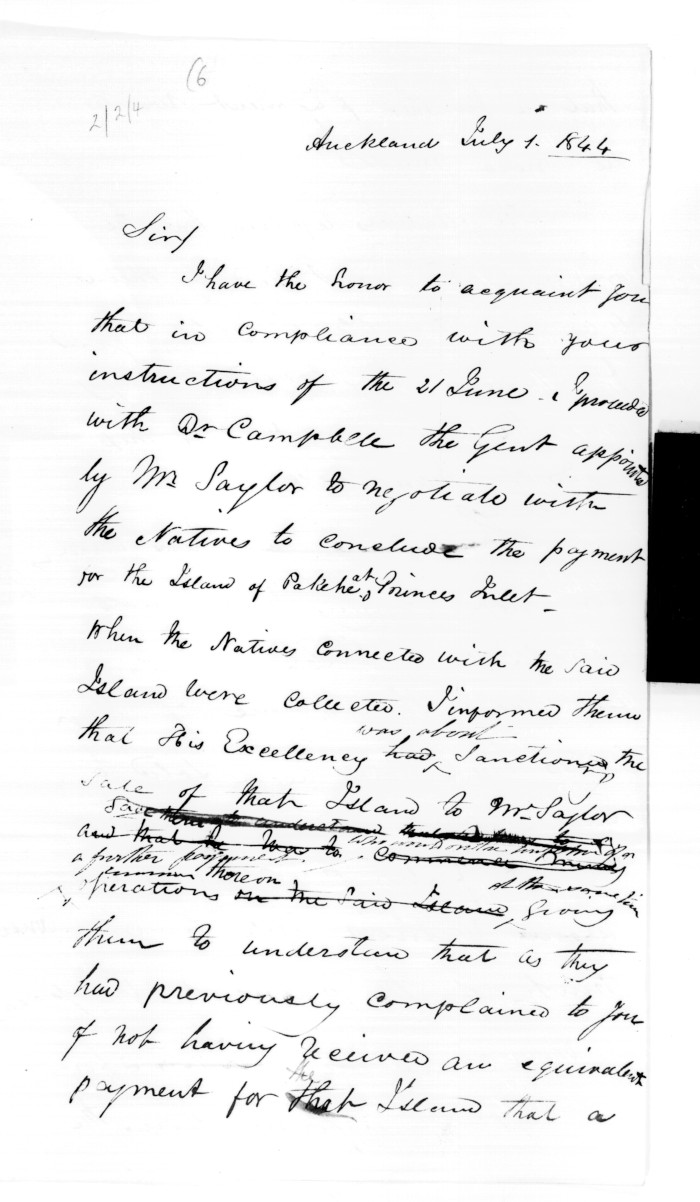 (6
2/2/4
Auckland July 1. 1844
Sir
I have the honor to acquaint you
that in compliance with your
instructions of the 21 June. I proceeded
with Dr Campbell the Gent appointed
by Mr Taylor to negotiate with
the Natives to conclude the payment
for the Island of Pakihe at Princes Inlet
When the Natives connected with the said
Island were collected. I informed them
was about
that His Excellency had sanctioned the
sale of that Island to Mr Taylor
gave them to understand
and that he was to commence mining
a further payment.
thereon at the same time
operations on the said Island, giving
them to understand that as they
had previously complained to you
of not having received an equivalent
the
payment for that Island that a